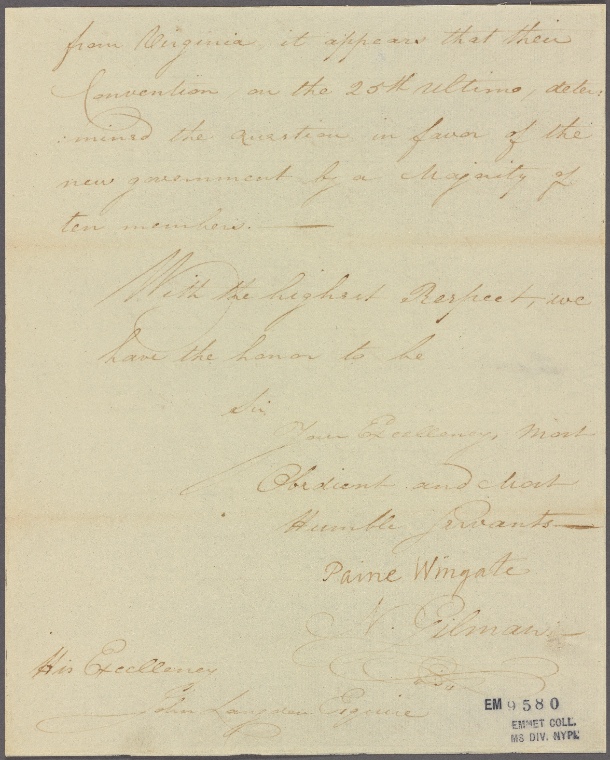 from Virginia, it appears that their
Convention, on the 25th Ultimo, deter:
:mined the question in favor of the
new government by a Majority of
ten members.
With the highest Respect, we
have the honor to be
Sir
Your Excellency, Most
Obedient and Most
Humble Servants
Paine Wingate
N. Gilman
His Excellency
John Langdon Esquire
EM 9580
EMMET COLL.
MS DIV. NYPL